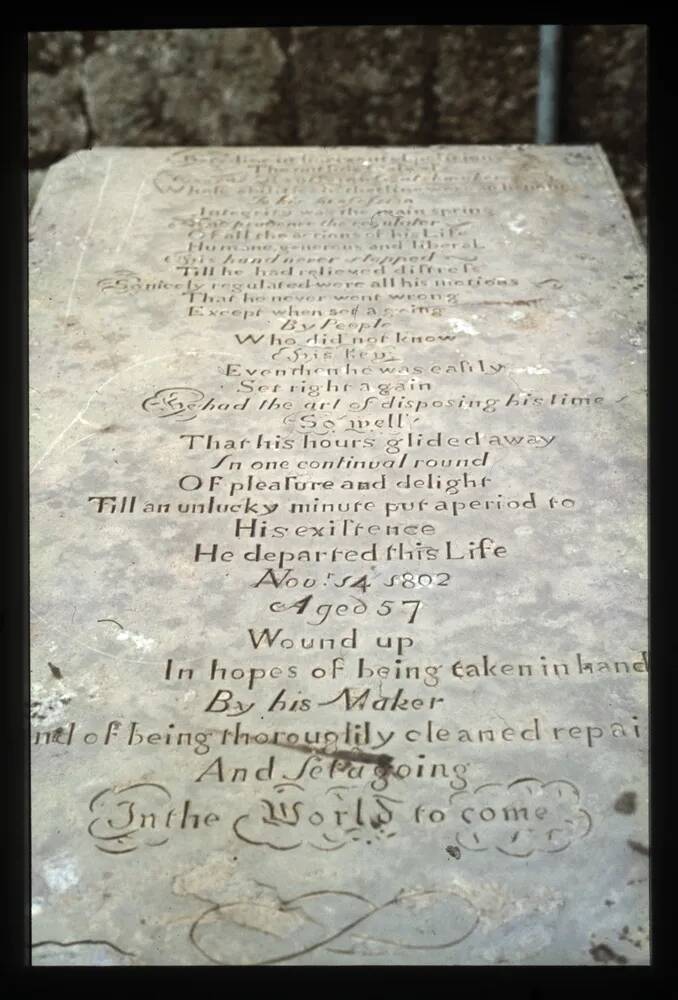 Here lise in horizontal position
The outside case of
Whose abilities in that line were an honour
To his profession
Integrity was the main spring
And prudence the regulator
Of all the actions of his Life
Humane, generous and liberal
His hand never stopped
Till he had relieved diſtreſs
So nicely regulated were all his motions
That he never went wrong
Except when set a going
By People
Who did not know
His Key
Even then he was eaſily
Set right again
He had the art of disposing his time
So well
That his hours glided away
In one continual round
Of pleaſure and delight
Till an unlucky minute put a period to
His exiſtence
He departed this Life
Nov.r 14 1802
Aged 57
Wound up
In hopes of being taken in hand
By his Maker
nd of being thoroughly cleaned repai
And Set a going
In the World to come